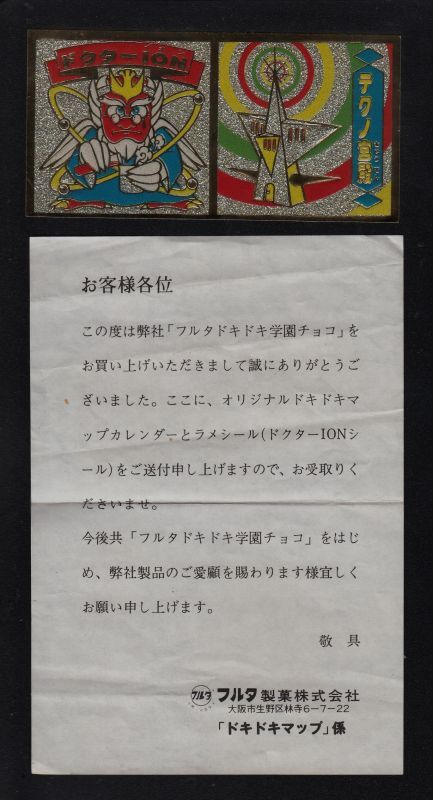 ドクターION
テクノ宮殿
お客様各位
この度は弊社「フルタドキドキ学園チョコ」を
お買い上げいただきまして誠にありがとうご
ざいました。ここに、オリジナルドキドキマ
ップカレンダーとラメシール(ドクターIONシ
ール)をご送付申し上げますので、お受取りく
ださいませ。
今後共「フルタドキドキ学園チョコ」をはじ
め、弊社製品のご愛顧を賜わります様宜しく
お願い申し上げます。
敬具
フルタ フルタ製菓株式会社
大阪市生野区林寺6-7-22
「ドキドキマップ」係